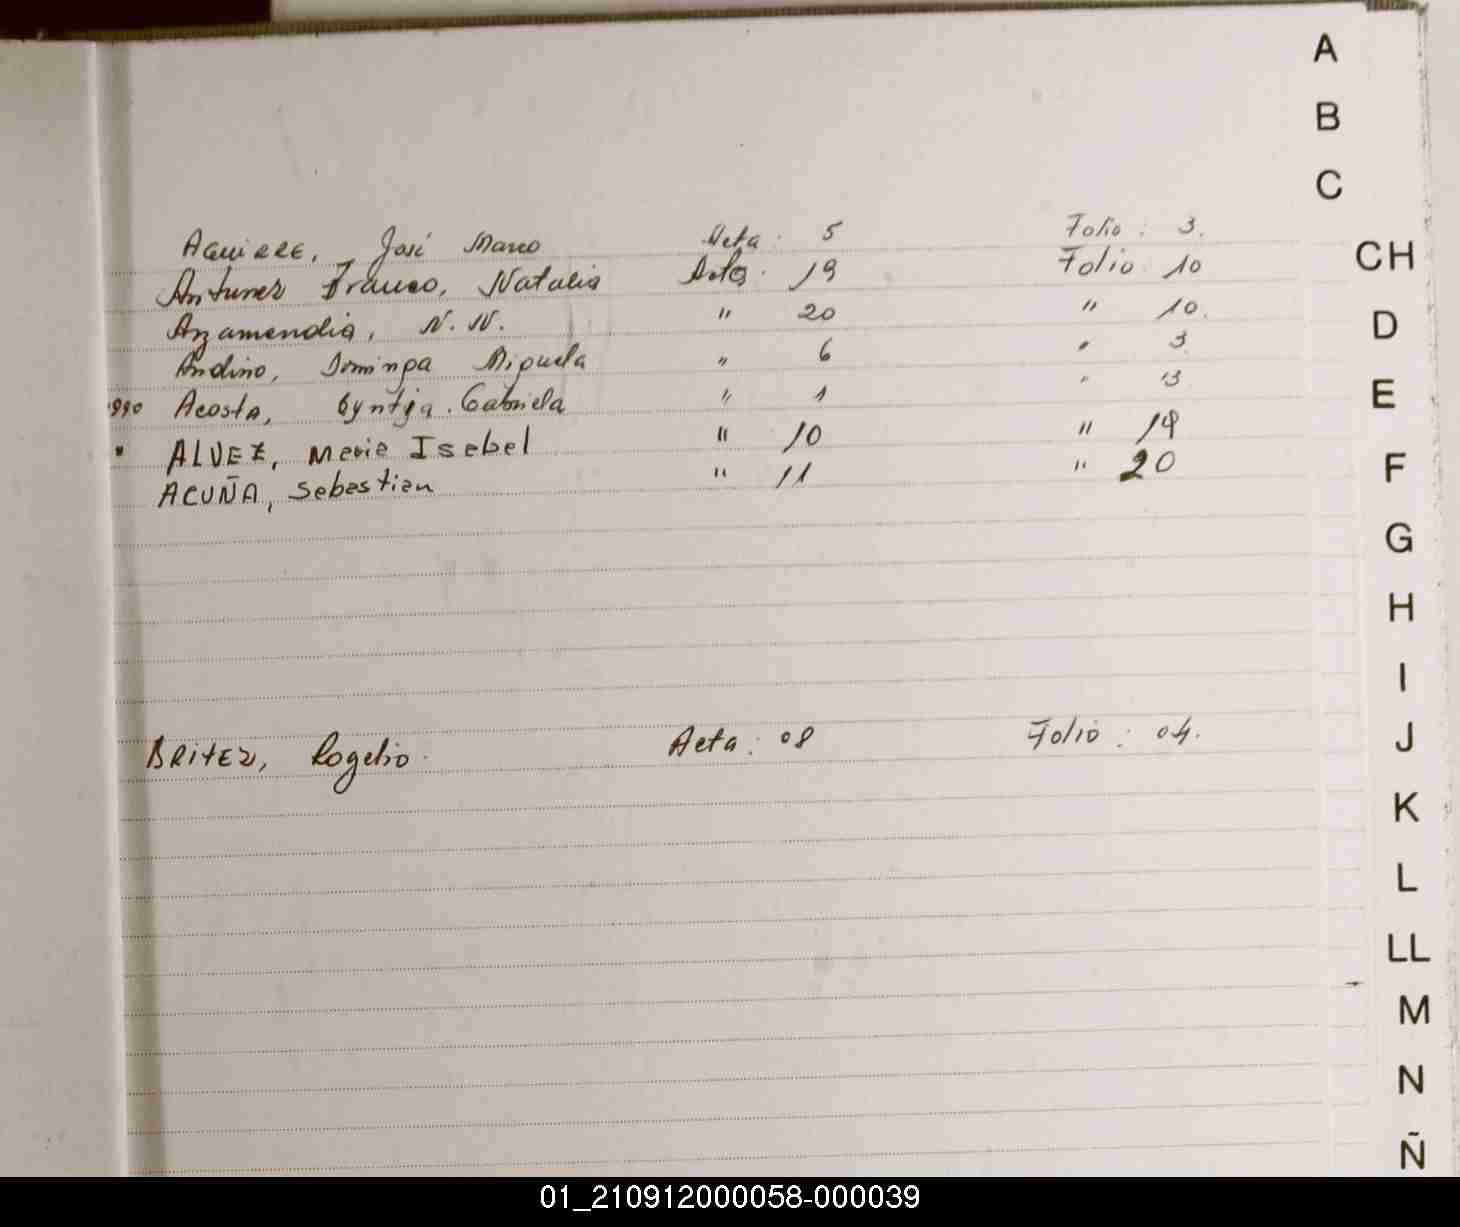 A
B
C
AGUIRRE, José Marco Acta: 5 Folio: 3.
Antunez Franco, Natalia Acta. 19 Folio 10
CH
Azamendia, N. N. " 20 " 10.
D
Andino, Dominga Miguela " 6 " 3
1990 Acosta, Cyntya. Gabriela " 1 " 13
E
" ALVEZ, Maria Isabel " 10 " 19
ACUÑA, Sebastian " 11 " 20
F
G
H
I
BRITEZ, Rogelio. Acta: 08 Folio: 04.
J
K
L
LL
M
N
Ñ
01_210912000058-000039